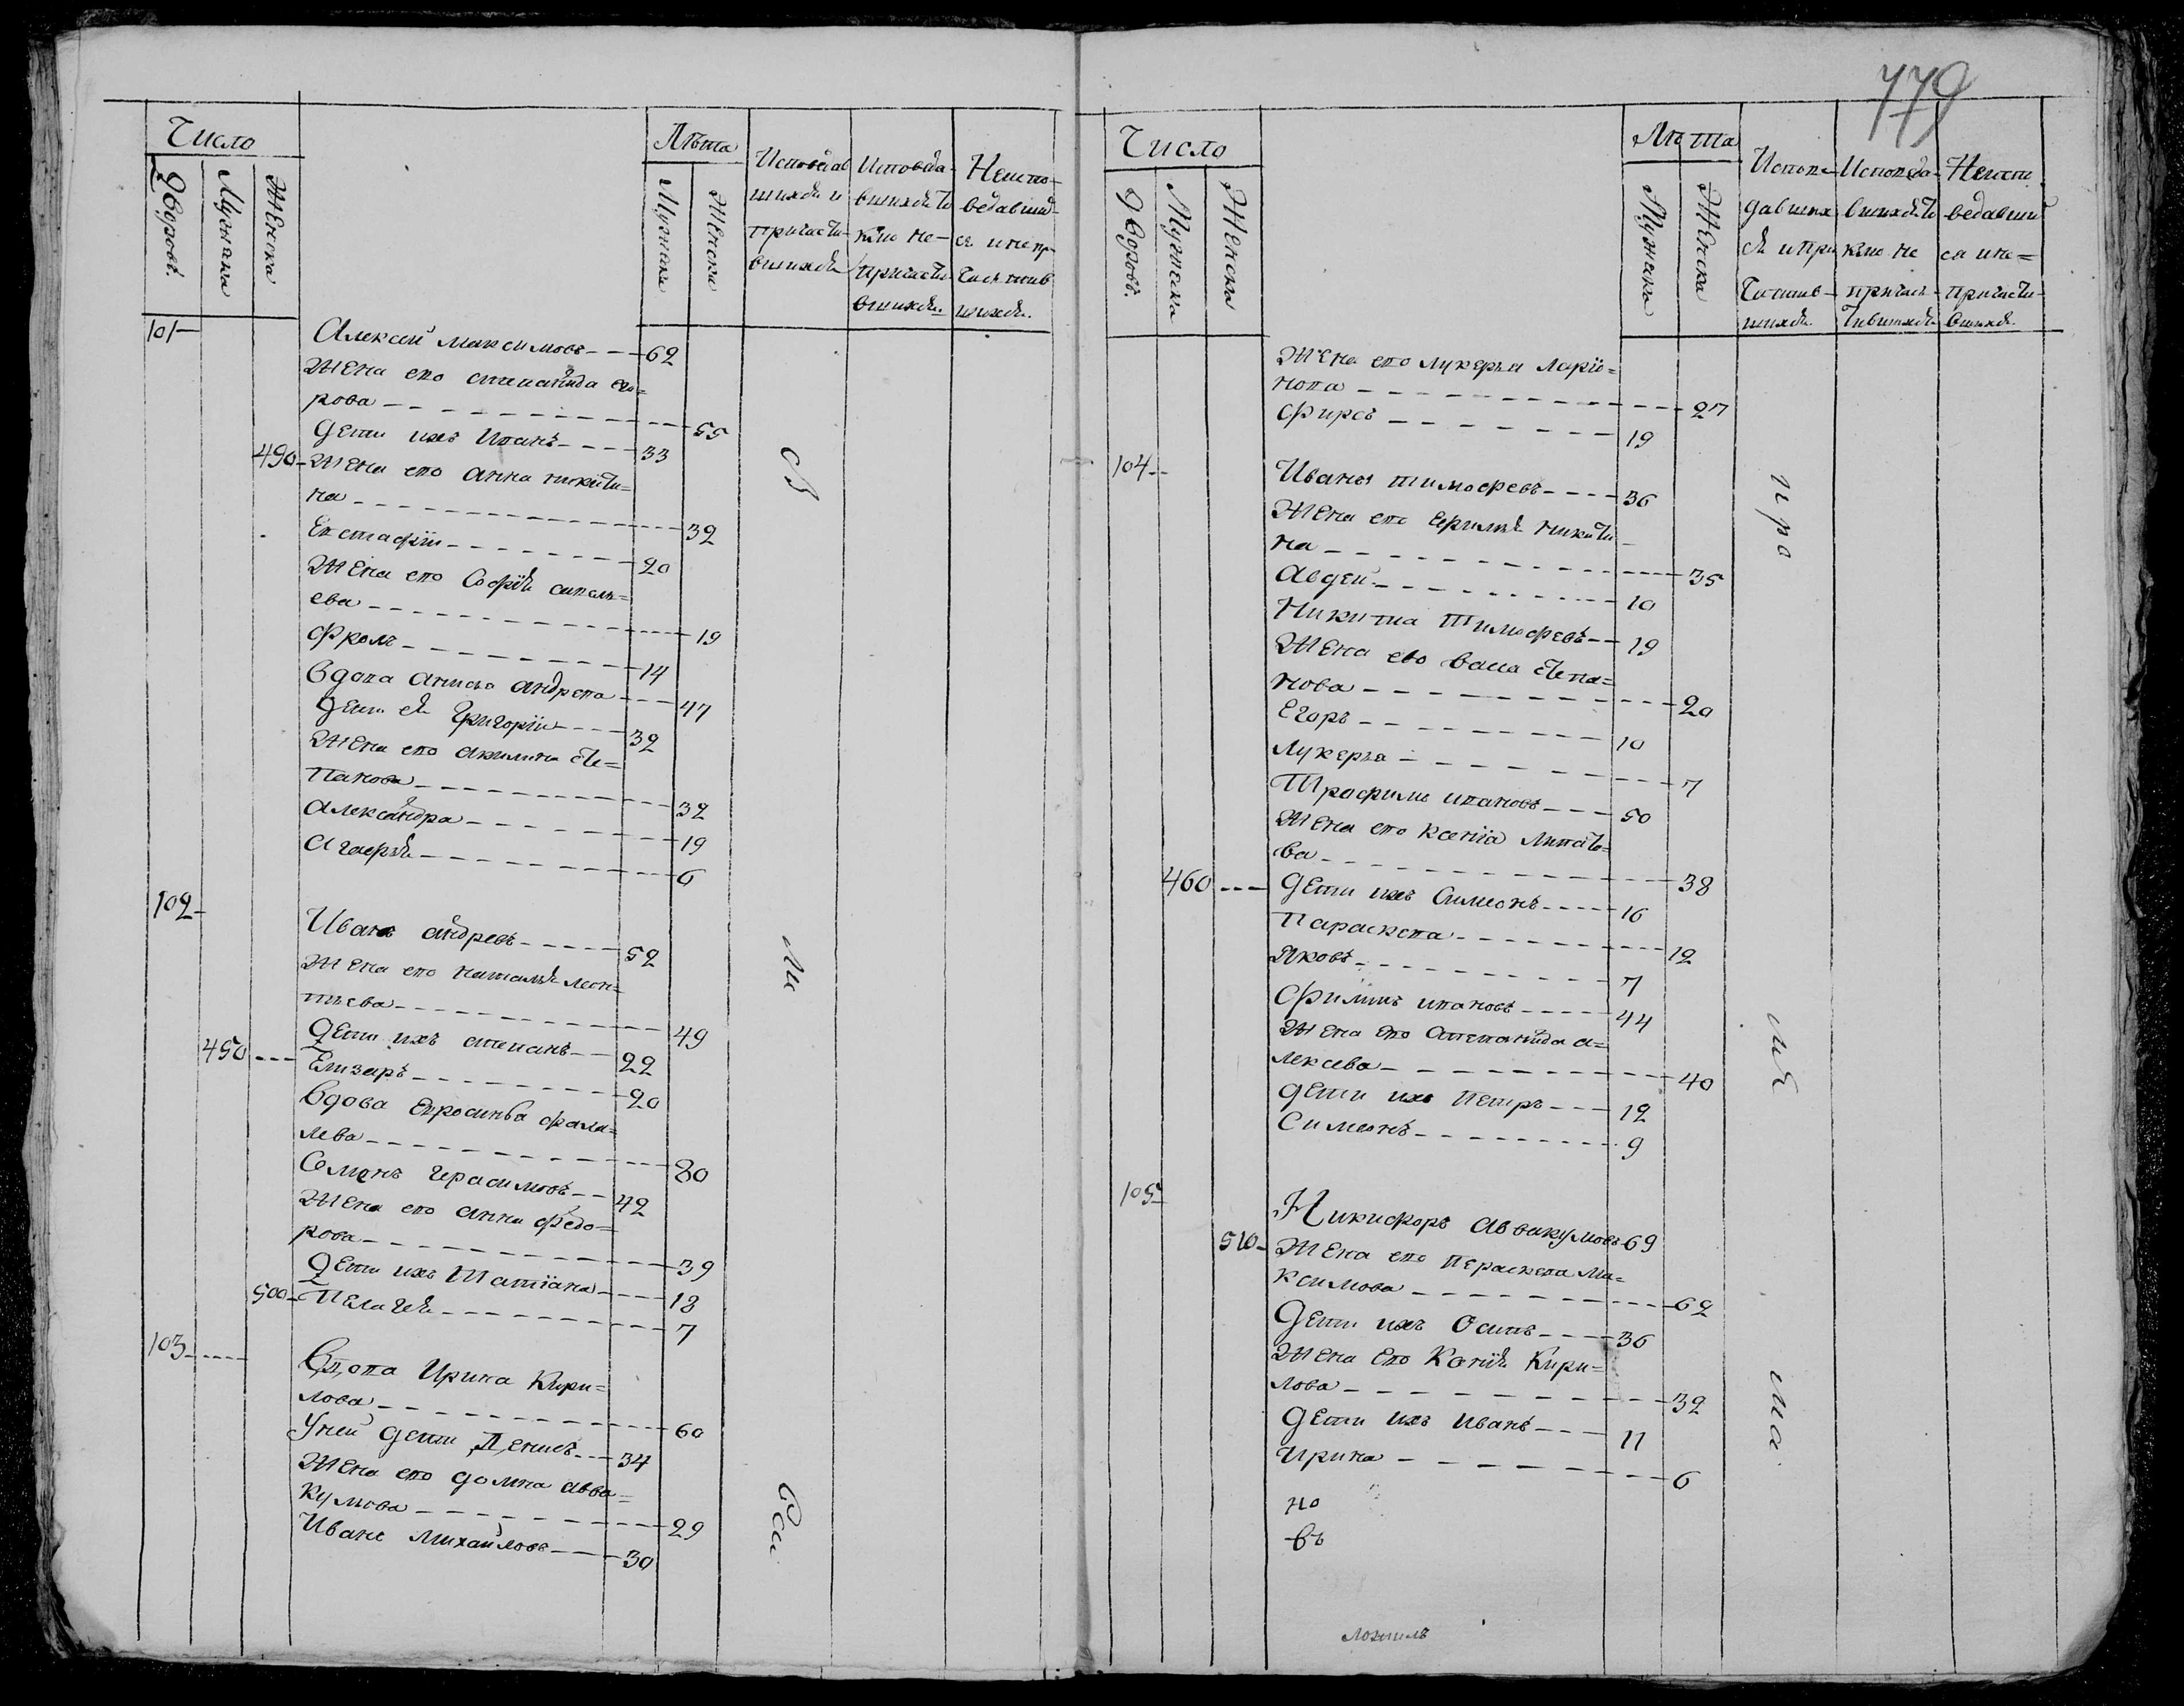 779
Число
Дворовъ.
Мужеска
Женска
Лѣта
Мужеска
Женска
Исповѣдав
шихся и
причасти
вшихся
Исповѣда-
вшихся то
кмо не-
причасти
вшихся.
Неиспо-
ведавши
ся и не пр
частив
шихся.
101
Алексѣй Максимовъ 62
Жена ево степанида его=
рова 55
Дети ихъ Иванъ 33
490 Жена ево анна никити=
на 32
Евстафiи 20
Жена ево Софiя савель=
ева 19
Фролъ 14
Вдова анисья андрева 47
Дети ея Григорiи 32
Жена ево акилина сте=
панова 32
Александра 19
Агафья 6
102
Иванъ андревъ 52
Жена ево наталья леон=
тьева 49
Дети ихъ степанъ 22
450 Елизаръ 20
Вдова Ефросинья фала=
лева 80
Семонъ Герасимовъ 42
Жена ево анна федо=
рова 39
Дети ихъ Татiана 18
500 Пелагея 7
103
Вдова Ирина Кири=
лова 60
У ней дети Денисъ 34
Жена ево домна авва=
кумова 29
Иванъ Михайловъ 30
св
Ми
Сои
Число
Дворовъ.
Мужеска
Женска
Лѣта
Мужеска
Женска
Испове-
давших
ся и при
частив-
шихся.
Исповеда-
вшихся то
кмо не
причас-
тившихся
Неиспо
ведавши
ся и не=
причасти-
вшихся.
Жена ево лукерья Ларiо=
нова 27
Фирсъ 19
104
Иванъ тимофевъ 36
Жена ево Ефимья никити
на 35
Авдеи 10
Никита Тимофевъ 19
Жена ево васса степа=
нова 20
Егоръ 10
Лукерья 7
Трофимъ ивановъ 50
Жена ево ксенiа Липато=
ва 38
460 Дети ихъ Симеонъ 16
Параскева 12
Яковъ 7
Филипъ ивановъ 44
Жена ево степанида а=
лексева 40
Дети ихъ Петръ 12
Симеонъ 9
105
Никифоръ Аввакумовъ 69
510 Жена ево Пераскева Ма=
ксимова 62
Дети ихъ Осипъ 36
Жена ево Ксенiя Кири=
лова 32
Дети ихъ Иванъ 11
Ирина 6
но
въ
про
мя
ма